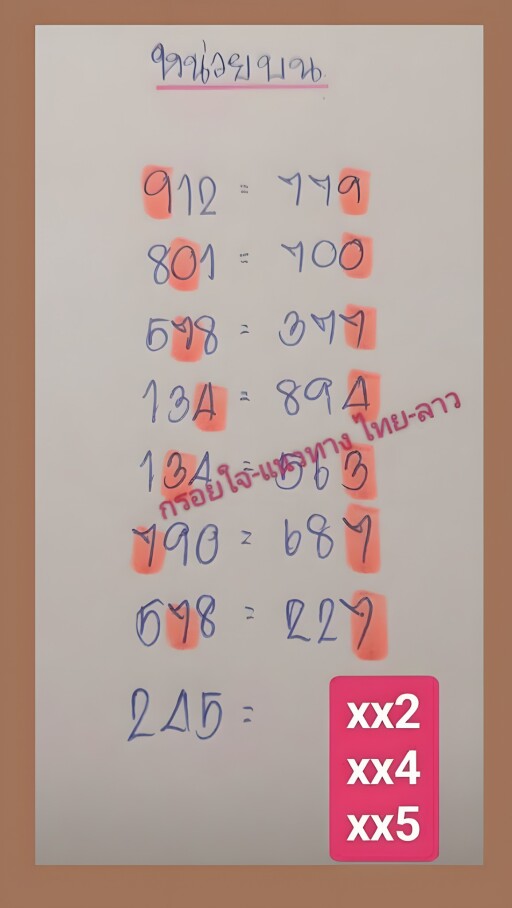 หน่วยบน
912 = 779
801 = 700
578 = 377
134 = 894
134 = 563
กรอยใจ-แนวทาง ไทย-ลาว
790 = 687
578 = 227
245 =
xx2
xx4
xx5